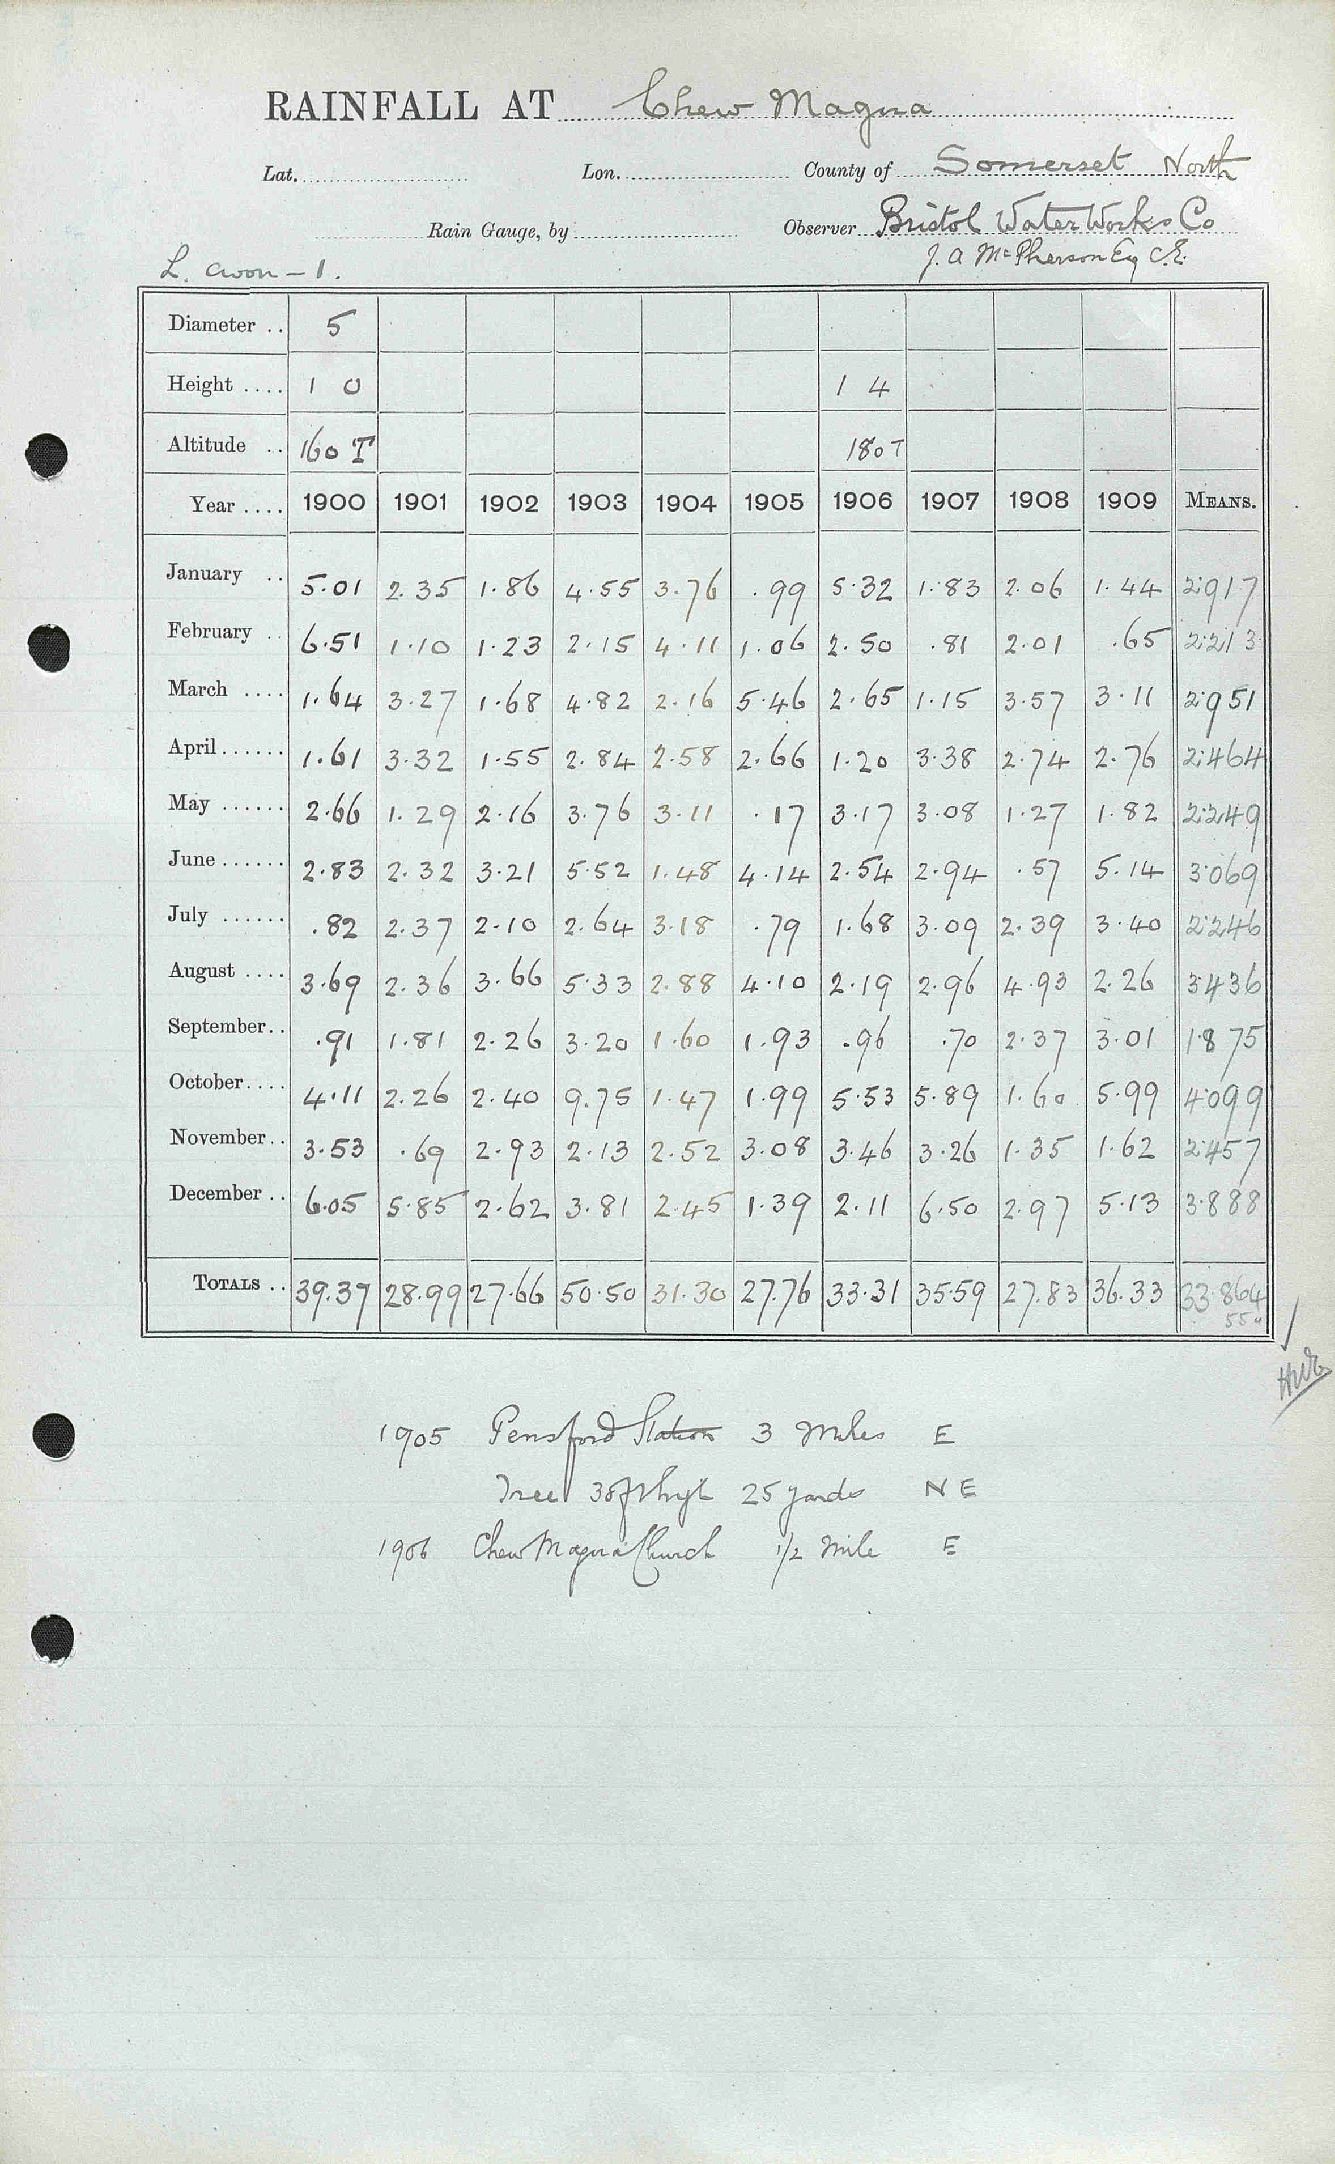 RAINFALL AT Chew Magna
Lat. Lon. County of Somerset North
Rain Gauge, by Observer Bristol WaterWorks Co
J. A McPherson Esq C.E.
L. Avon - 1.
Diameter .. 5
Height .... 1 0 1 4
Altitude .. 160 T 180 T
Year .... 1900 1901 1902 1903 1904 1905 1906 1907 1908 1909 MEANS.
January .. 5.01 2.35 1.86 4.55 3.76 .99 5.32 1.83 2.06 1.44 2.917
February .. 6.51 1.10 1.23 2.15 4.11 1.06 2.50 .81 2.01 .65 2.213
March .... 1.64 3.27 1.68 4.82 2.16 5.46 2.65 1.15 3.57 3.11 2.951
April...... 1.61 3.32 1.55 2.84 2.58 2.66 1.20 3.38 2.74 2.76 2.464
May ...... 2.66 1.29 2.16 3.76 3.11 .17 3.17 3.08 1.27 1.82 2.249
June ...... 2.83 2.32 3.21 5.52 1.48 4.14 2.54 2.94 .57 5.14 3.069
July ...... .82 2.37 2.10 2.64 3.18 .79 1.68 3.09 2.39 3.40 2.246
August .... 3.69 2.36 3.66 5.33 2.88 4.10 2.19 2.96 4.93 2.26 3.436
September.. .91 1.81 2.26 3.20 1.60 1.93 .96 .70 2.37 3.01 1.875
October.... 4.11 2.26 2.40 9.75 1.47 1.99 5.53 5.89 1.60 5.99 4.099
November.. 3.53 .69 2.93 2.13 2.52 3.08 3.46 3.26 1.35 1.62 2.457
December .. 6.05 5.85 2.62 3.81 2.45 1.39 2.11 6.50 2.97 5.13 3.888
TOTALS .. 39.37 28.99 27.66 50.50 31.30 27.76 33.31 35.59 27.83 36.33 33.864
1905 Pensford Station 3 Miles E
Tree 38ft high 25 yards NE
1906 Chew Magna Church 1/2 Mile E